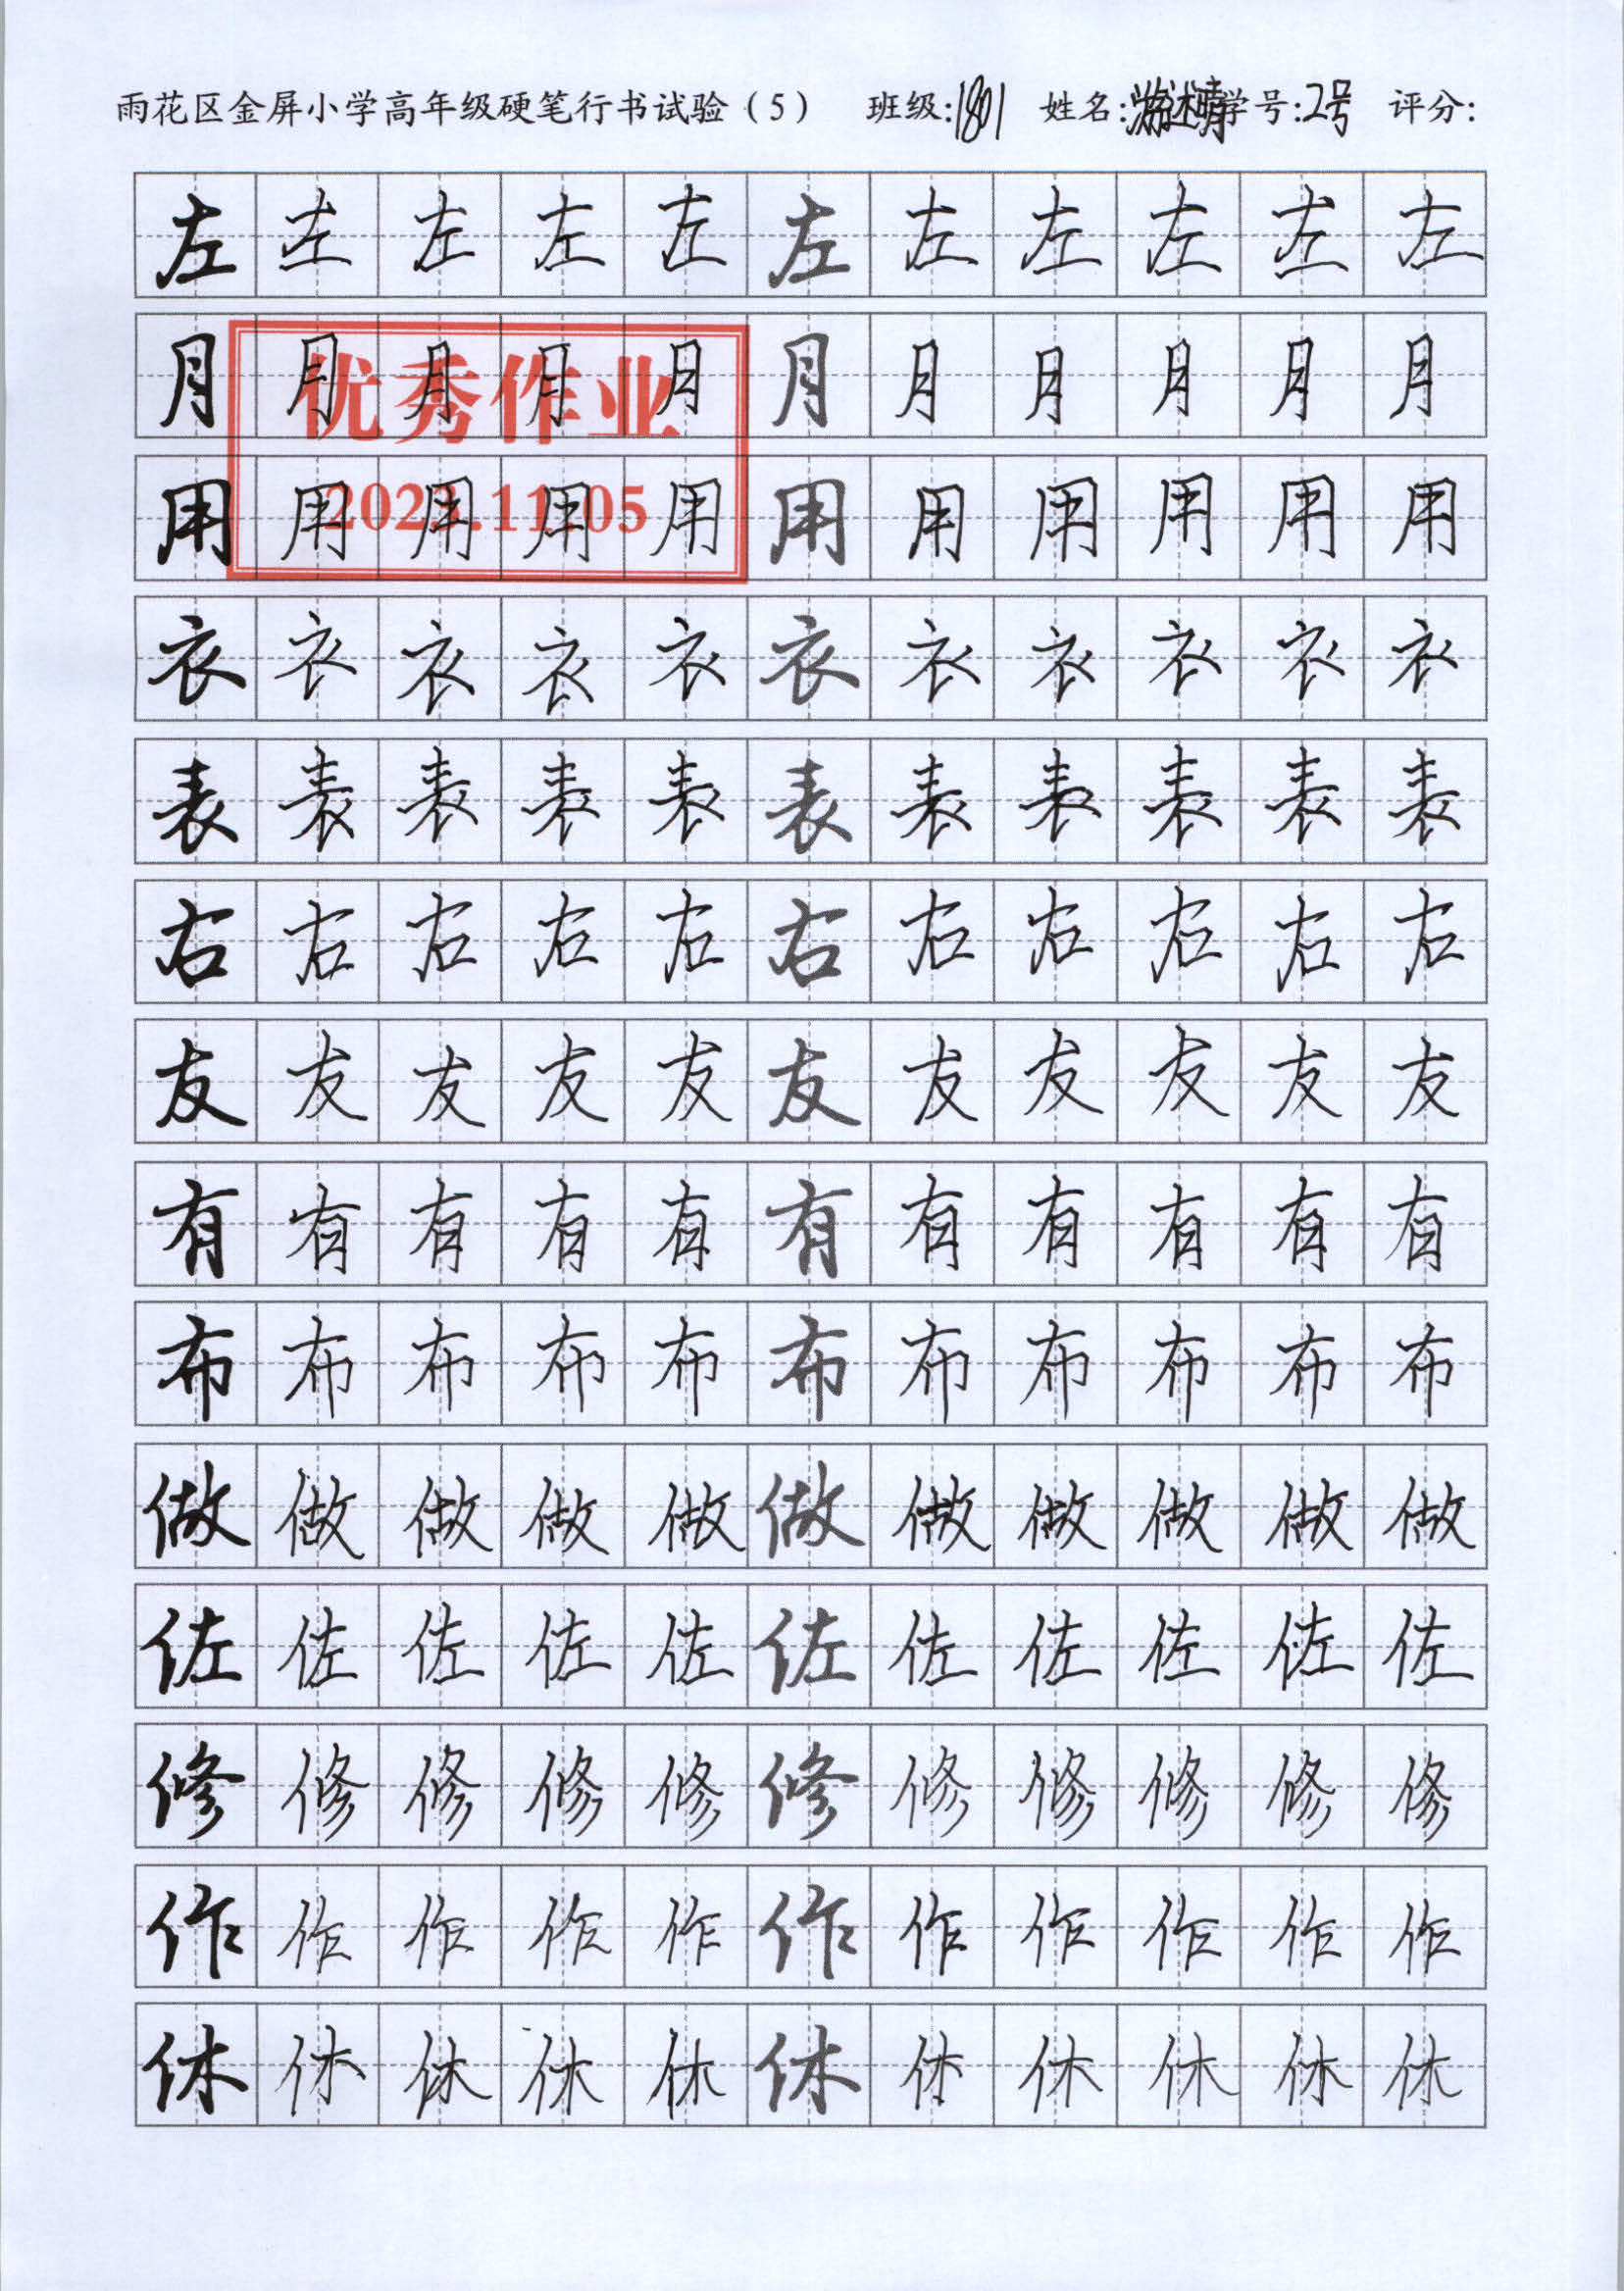 雨花区金屏小学高年级硬笔行书试验（5） 班级:1801 姓名:游述晴 学号:2号 评分:
左左左左左左左左左左左
月月月月月月月月月月月
优秀作业
用用用用用用用用用用用
2023.11.05
衣衣衣衣衣衣衣衣衣衣衣
表表表表表表表表表表表
右右右右右右右右右右右
友友友友友友友友友友友
有有有有有有有有有有有
布布布布布布布布布布布
做做做做做做做做做做做
佐佐佐佐佐佐佐佐佐佐佐
修修修修修修修修修修修
作作作作作作作作作作作
休休休休休休休休休休休